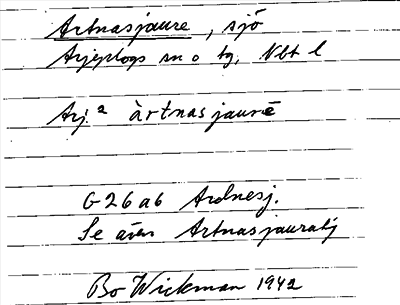 Artnasjaure, sjö
Arjeplogs sn o tg, Nbt l
Arj.² àrtnasjaurē
G26a6 Ardnesj.
Se även Artnasjauratj
Bo Wickman 1942